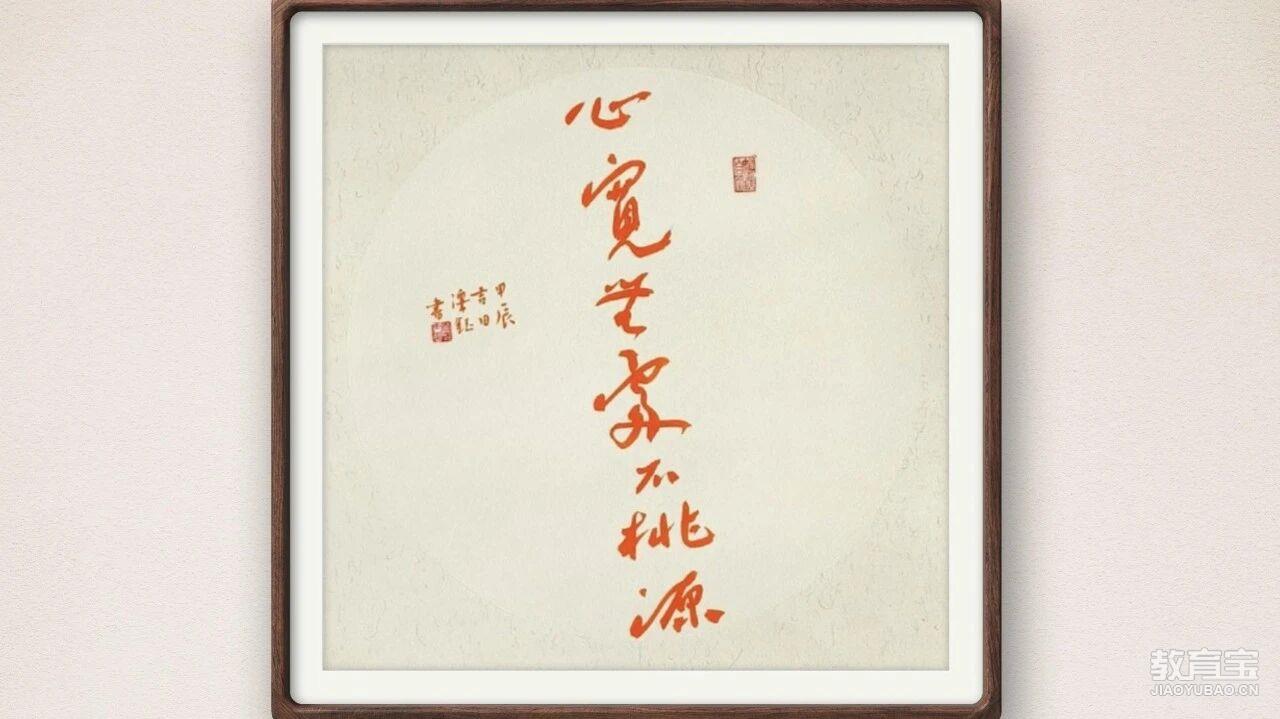 心寬無處不桃源
甲辰
吉日
書
教育宝
JIAOYUBAO.CN